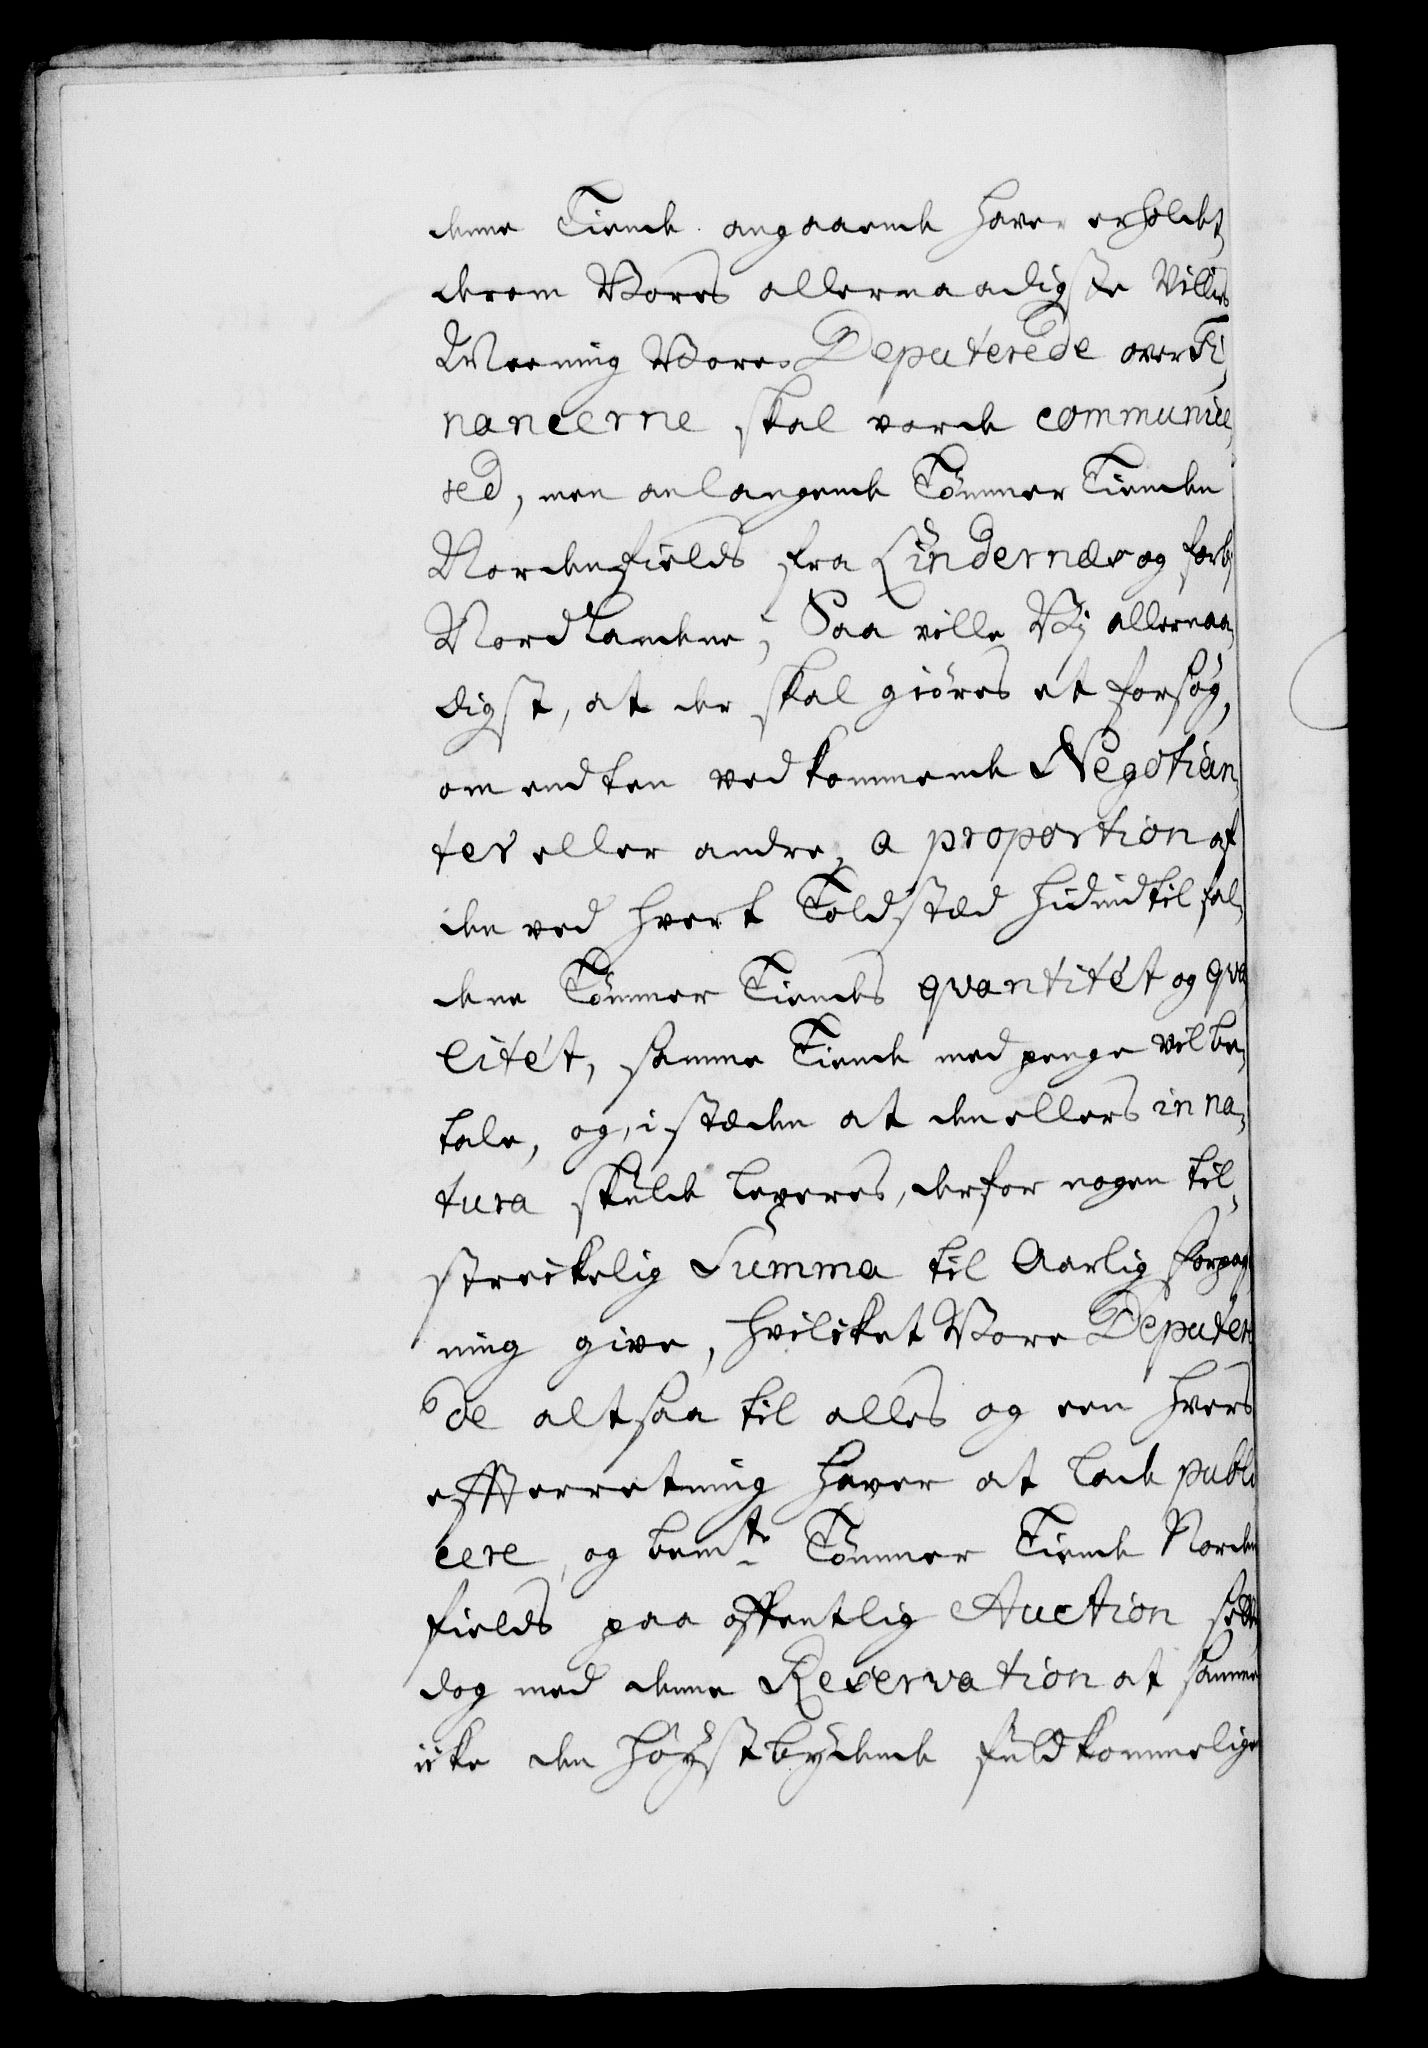 denne Tiende angaaende haver erholdet,
derom Vores allernaadigste Villies
Meening Vores Deputerede over Fi,
nancerne skal vorde communice,
red, men anlangende Tömmer Tienden
Nordenfields fra Lindernæs og forbj
Nordlandene, Saa ville Vj allernaa,
digst, at der skal giöres et forsög,
om endten vedkommende Negotian,
ter eller andre, a proportion af
den ved hvert Toldstæd hidindtil fal,
dene Tömmer Tiendes qvantitét og qva
litét, samme Tiende med penge vil be,
tale, og, i stæden at den ellers in na,
tura skulde leveres, derfor nogen til,
streckelig Summa til Aarlig forpagt
ning give, hvilcket Vore Deputere
de altsaa til alles og een hvers
efterretning haver at lade publi
cere, og bemte Tömmer Tiende Norden
fields paa offentlig Auction sette
dog med denne Reservation at samme
icke den höystbydende fuldkommelige